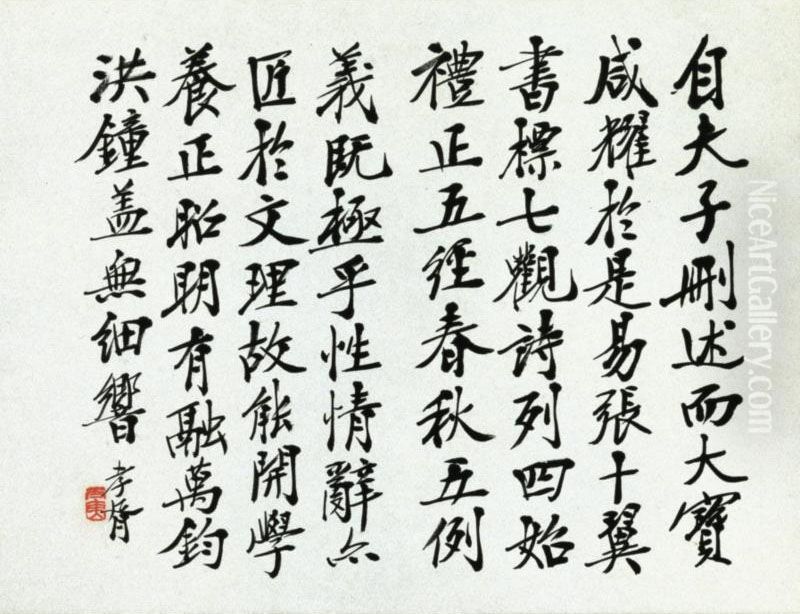 自夫子刪述而大寶
咸耀於是易張十翼
書標七觀詩列四始
禮正五經春秋五例
義既極乎性情辭亦
匠於文理故能開學
養正昭明有融萬鈞
洪鐘蓋無細響
孝胥
NiceArtGallery.com